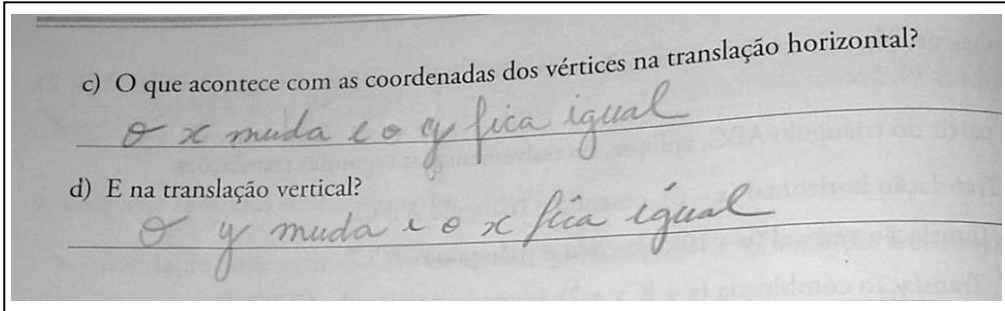 c) O que acontece com as coordenadas dos vértices na translação horizontal?
o x muda e o y fica igual
d) E na translação vertical?
o y muda e o x fica igual